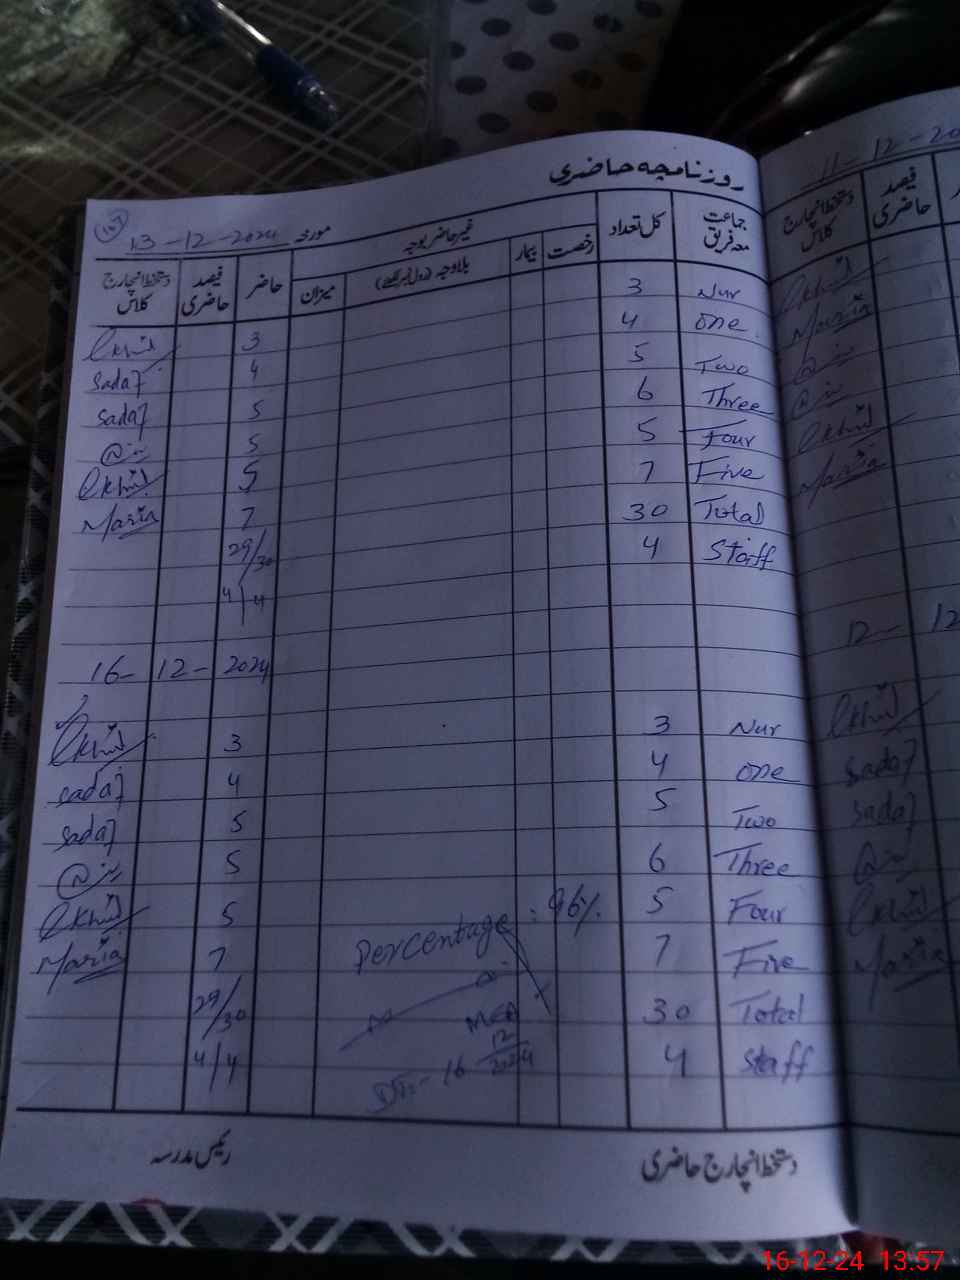 روزنامچہ حاضری
مورخہ 13-12-2024
جماعت معہ فریق کل تعداد غیر حاضر بوجہ حاضر فیصد حاضری دستخط انچارج کلاس
رخصت بیمار بلاوجہ میزان
Nur 3 3
one 4 4 Sadaf
Two 5 5 Sadaf
Three 6 5
Four 5 5
Five 7 7 Maria
Total 30 29/30
Staff 4 4/4
16-12-2024
Nur 3 3
one 4 4 Sadaf
Two 5 5 Sadaf
Three 6 5
Four 5 5
Five 7 7 Maria
Total 30 29/30
Staff 4 4/4
Percentage : 96%
MEA
DT:- 16 12 2024
دستخط انچارج حاضری
رئیس مدرسہ
11-12-20
فیصد حاضری دستخط انچارج کلاس
Maria
Maria
12- 12
Sadaf
Sadaf
Maria
16-12-24 13:57